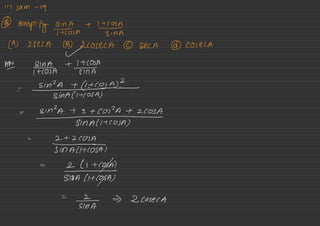 117 Jam -19
③ Simplify sinA/1+cosA + 1+cosA/sinA
(A) 2secA (B) 2cosecA (C) secA (D) cosecA
sinA/1+cosA + 1+cosA/sinA
= sin²A + (1+cosA)²/sinA(1+cosA)
= sin²A + 1 + cos²A + 2cosA/sinA(1+cosA)
= 2+2cosA/sinA(1+cosA)
= 2(1+cosA)/sinA(1+cosA)
= 2/sinA ⇒ 2cosecA